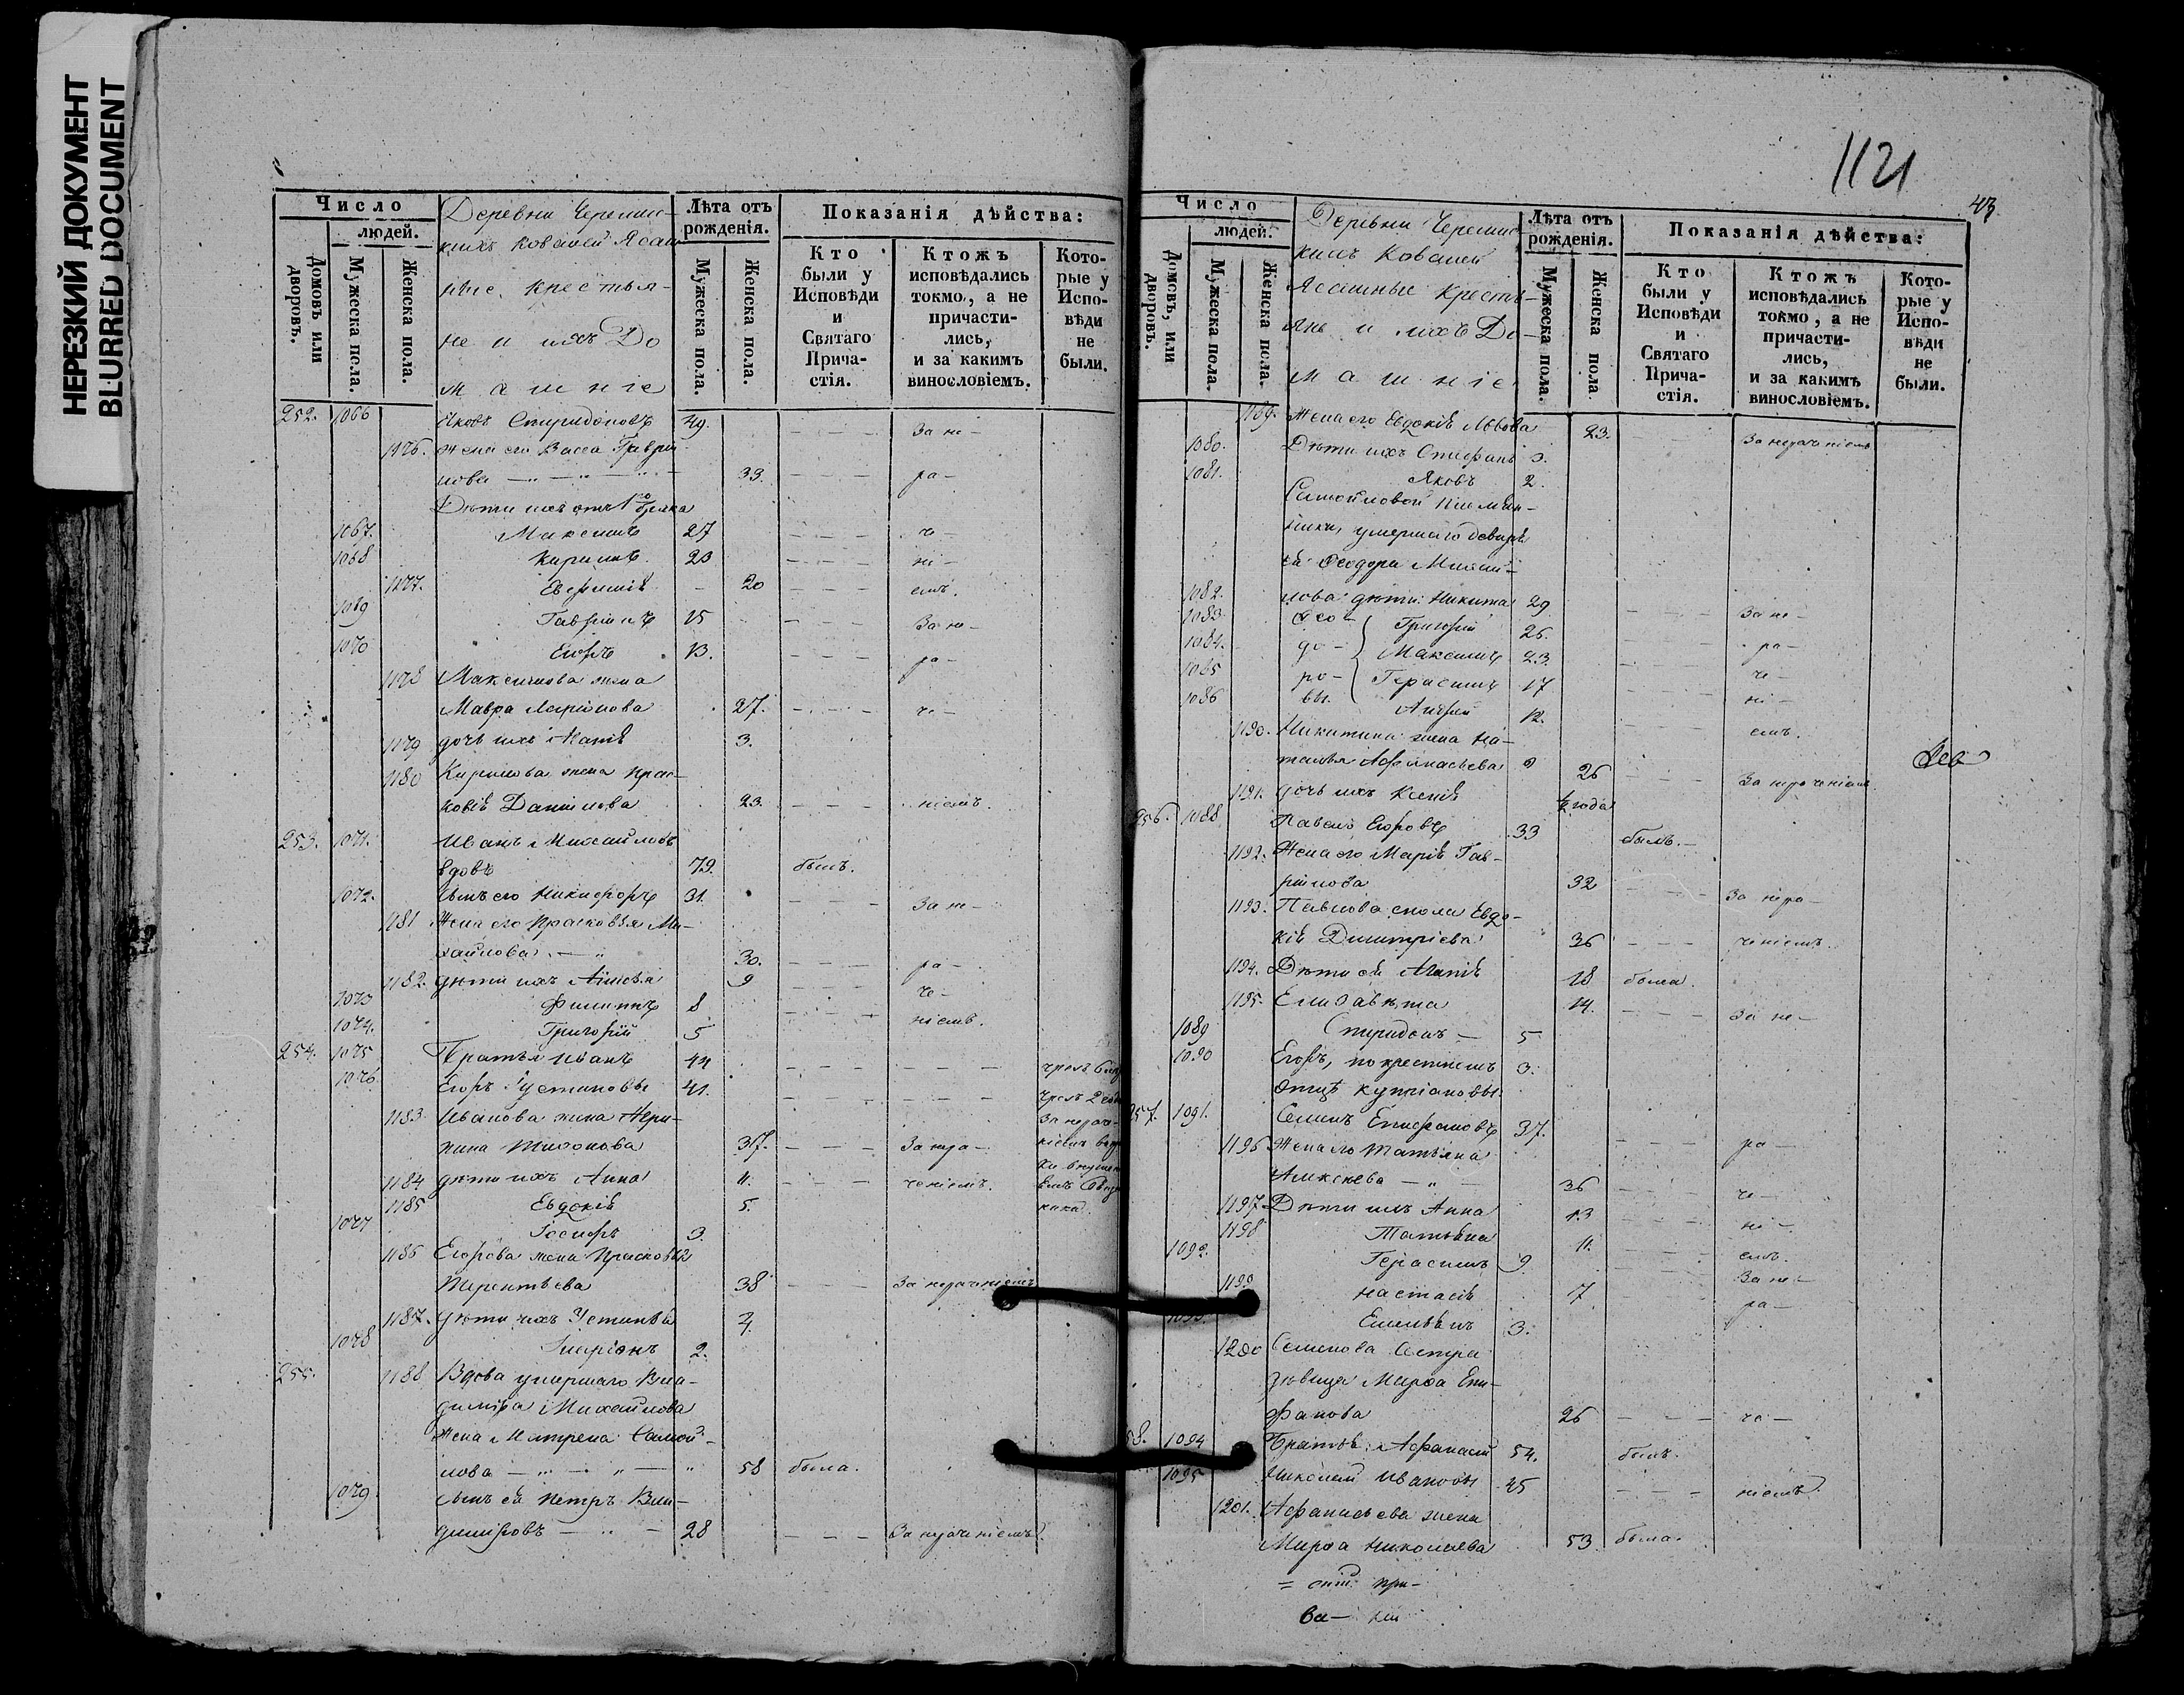 НЕРЕЗКИЙ ДОКУМЕНТ
BLURRED DOCUMENT
Число
людей.
Домовъ или дворовъ.
Мужеска пола.
Женска пола.
Деревни Черемис-
кихъ Ковалей Ясаш
ные крестья-
не и ихъ До
машніе
Лѣта отъ рожденія.
Мужеска пола.
Женска пола.
Показанія дѣйства:
Кто были у Исповѣди и Святаго Прича-стія.
Ктожъ исповѣдались токмо, а не причасти-лись, и за какимъ винословіемъ.
Кото-рые у Испо-вѣди не были.
252. 1066 Яковъ Спиридоновъ 49. – – – За не-
1176. Жена его Васса Гаврии
лова — " — " — 33. – – – ра-
Дѣти ихъ отъ 1го брака
1067. Максимъ 27 – – – че-
1068 Кирилъ 23 – – – ні-
1177. Евфимія – 20 – – – емъ.
1069 Гавріилъ 15 – – – За не-
1070 Егоръ 13. – – – ра-
1178 Максимова жена
Мавра Ларіонова 27. – – – че-
1179 дочь ихъ Марія 3.
1180 Кирилова жена Прас-
ковія Данилова 23. – – – ніемъ.
253. 1071. Иванъ Михайловъ
вдовъ 79. былъ.
1072. Сынъ его Никифоръ 31. – – – За не-
1181 Жена его Прасковья Ми-
хайлова — " 30. – – – ра-
1182. дѣти ихъ 9 – – – че-
1073 Филиппъ 8 – – – ніемъ.
1074. Григорій 5
254. 1075 Братья Иванъ 44 – – – – – –
1076 Егоръ Густиновы 41. – – – – – –
1183. Иванова жена Агри-
пина Тихонова 37. – – – За нера-
1184 дѣти ихъ Анна 11. – – – ченіемъ.
1185 Евдокія 5.
1077 3.
1186 Егорова жена Прасковья
Терентьева 38 – – – За нераченіемъ
1187. дѣти ихъ Устинья 4.
1078 Иларіонъ 2.
255. 1188 Вдова умершаго Вла-
диміра Михайлова
Жена Матрена Самой-
лова — " — " — " 58 была.
1079 сынъ ея Петръ Вла-
диміровъ — " — 28 – – – За нераченіемъ.
1121
43
Число
людей.
Домовъ, или дворовъ.
Мужеска пола.
Женска пола.
Деревни Черемис
кихъ Ковалей
Ясашные Крестъ-
янъ и ихъ До-
машніе
Лѣта отъ рожденія.
Мужеска пола.
Женска пола
Показанія дѣйства:
Кто были у Исповѣди и Святаго Прича-стія.
Ктожъ исповѣдались токмо, а не причасти-лись, и за какимъ винословіемъ.
Кото-рые у Испо-вѣди не были.
1189. Жена его Евдокія Львова 23. – – За нераченіемъ
1080. Дѣти ихъ Стефанъ 3.
1081. Яковъ 2.
Самойловой племян-
ники, умершаго деверя
ея Ѳеодора Михай-
1082. лова дѣти: Никита 29 – – – За не-
1083. Ѳео- Григорій 26. – – – ра-
1084. до- Максимъ 23. – че-
1085 ро- Герасимъ 17 – – – ні-
1086 вы. Андрей 12. – – – емъ.
1190. Никитина жена На-
талья Афанасьева 26 – – – За нераченіемъ
1191. дочь ихъ Ксенія ½ года
256. 1088 Павелъ Егоровъ 33 былъ.-
1192. Жена его Марія Гав-
рилова 32 – – – За нера-
1193. Павлова сноха Евдо-
кія Димитріева 36 – – – ченіемъ.
1194. Дѣти ея Марія 18 была.
1195. Елизавета 14. – – – За не-
1089 Спиридонъ — 5
1090 Егоръ, по крестномъ 3.
отцѣ Купріановы.
257. 1091. Семенъ Епифановъ 37. – – – ра-
1196 Жена его Татьяна
Алексѣева — " — 36 – – – че-
1197 Дѣти ихъ Анна 13 – – – ні-
1198 Татьяна 11. – – – емъ.
1092. Герасимъ 9 За не-
1199 Настасія 7 ра-
1093. Емельянъ 3.
1200 Семенова сестра
дѣвица Марѳа Епи-
фанова 26 – – – че-
58. 1094 Братья: Афанасій 54. былъ.
1095 Николай Ивановы 45 – – – ніемъ.
1201. Афанасьева жена
Марѳа Николаева 53. была.